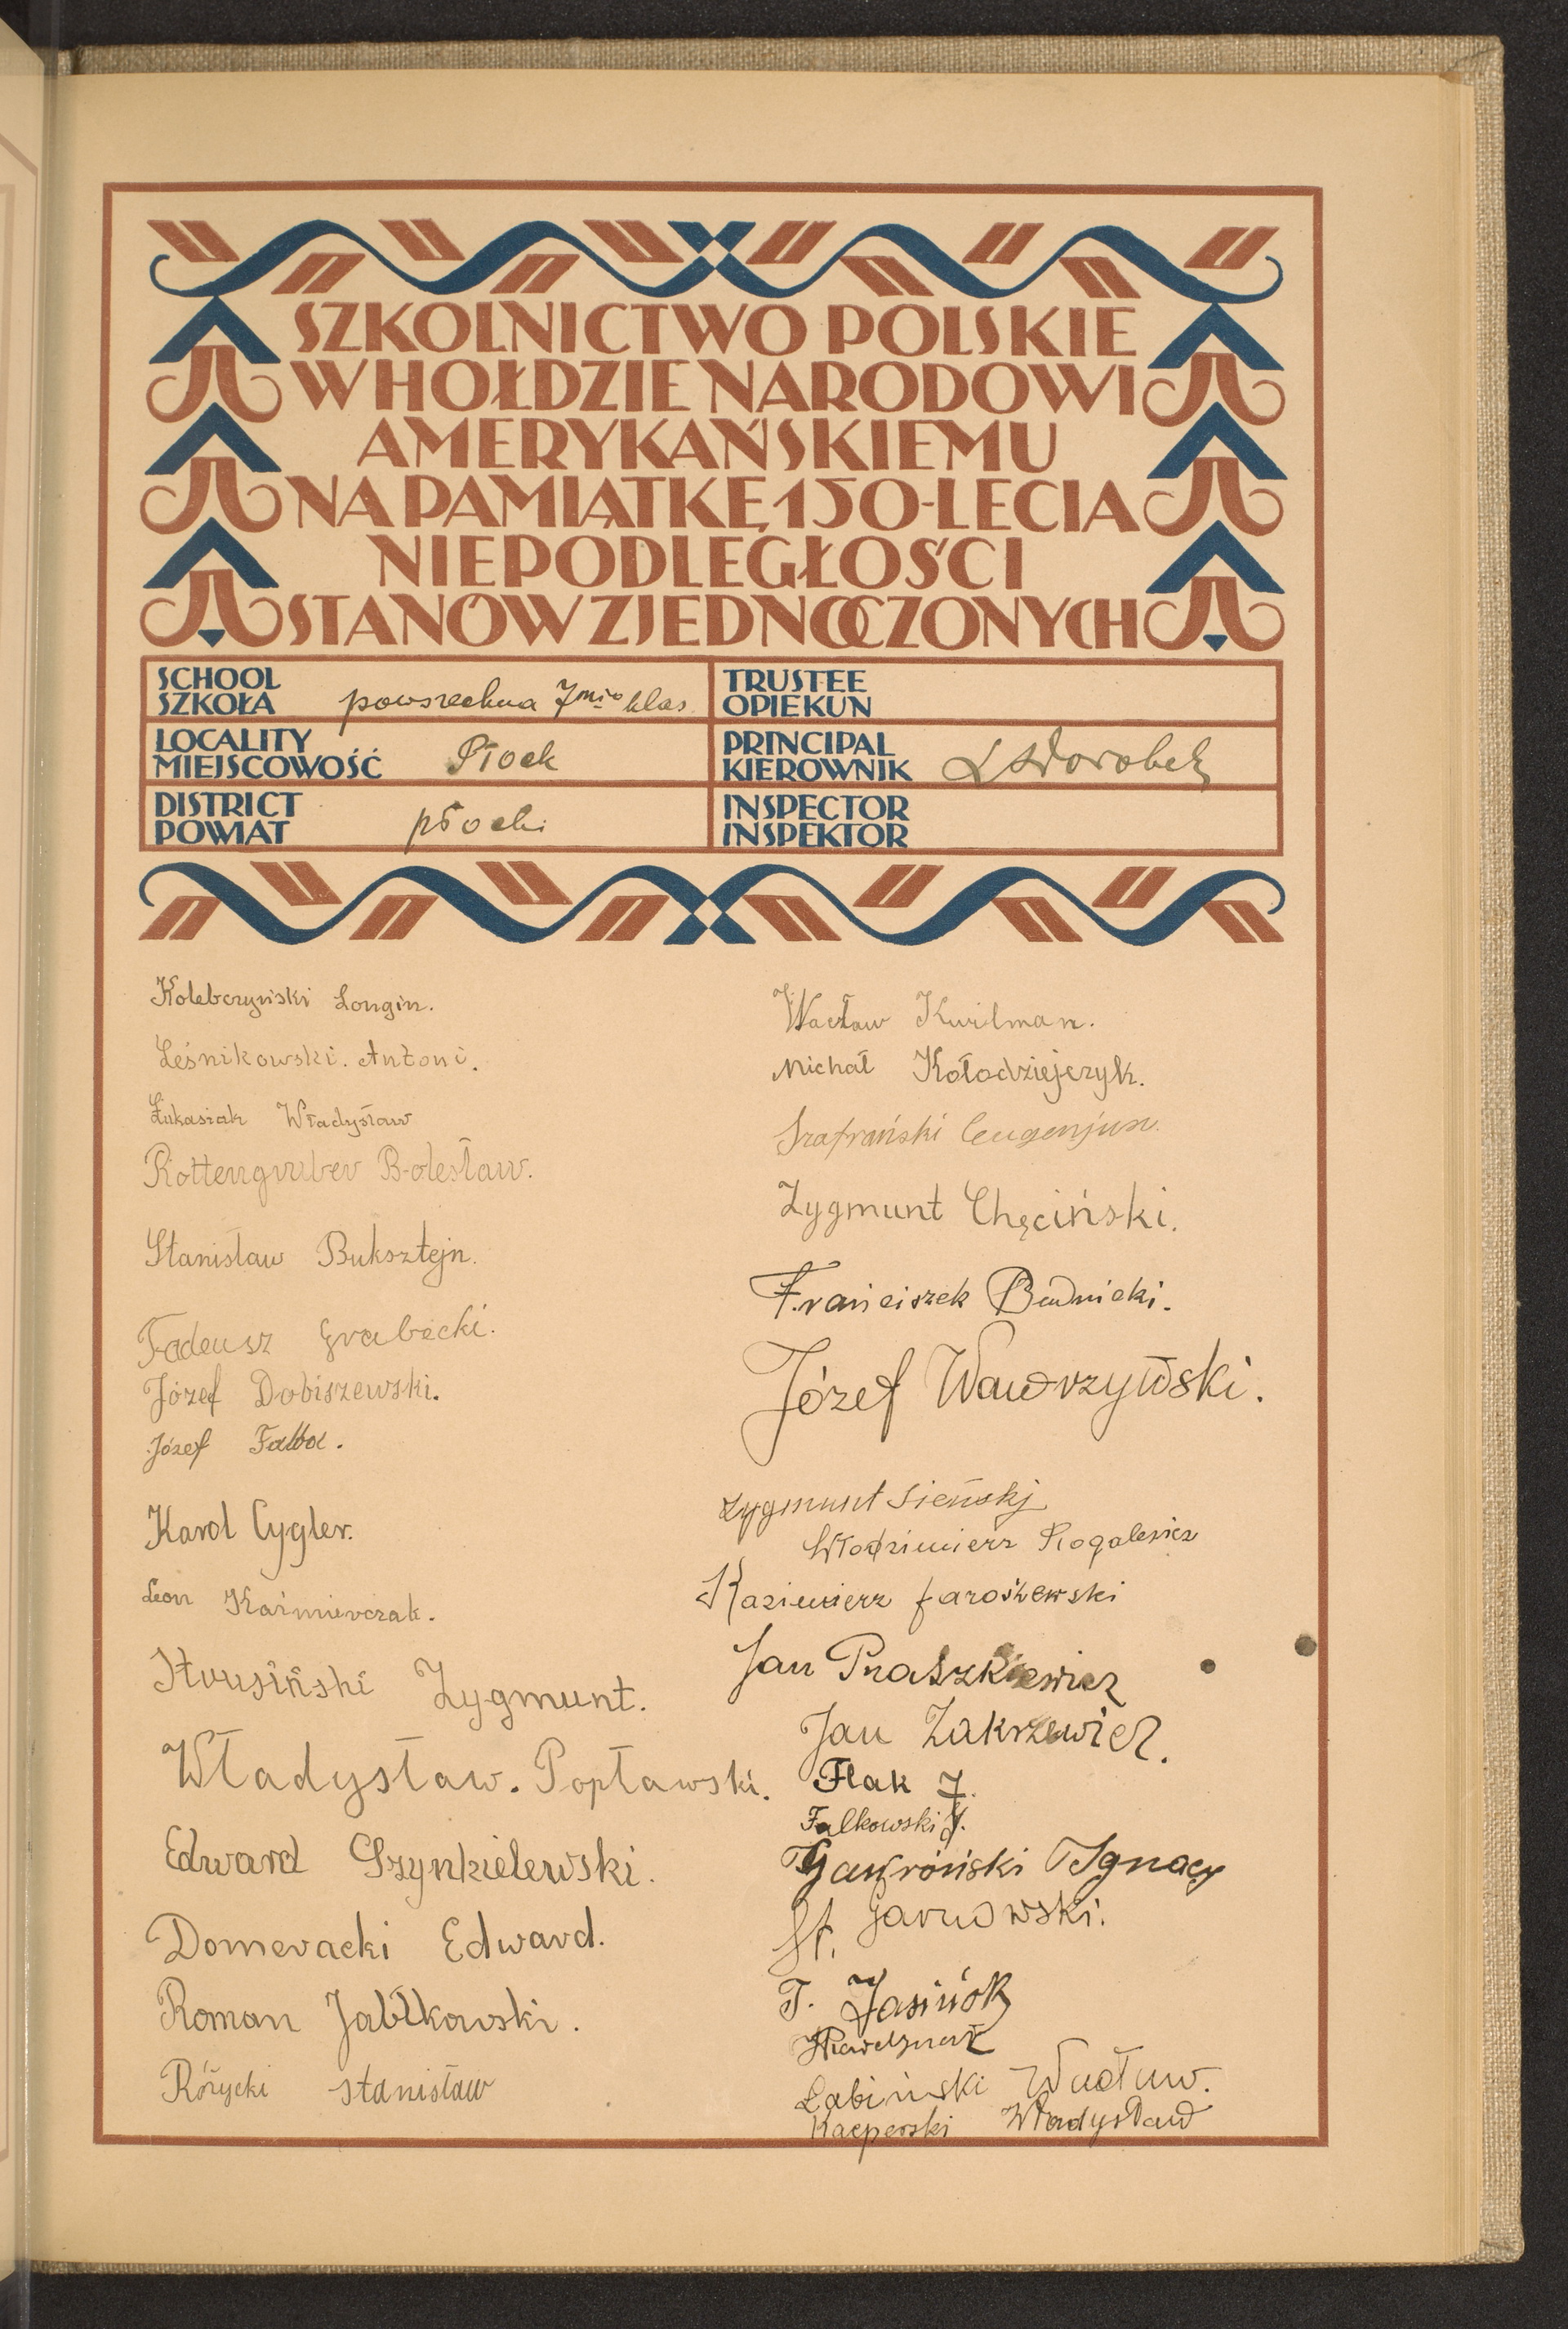 SZKOLNICTWO POLSKIE
W HOŁDZIE NARODOWI
AMERYKAŃSKIEMU
NA PAMIĄTKĘ 150-LECIA
NIEPODLEGŁOŚCI
STANÓW ZJEDNOCZONYCH
SCHOOL
SZKOŁA powszechna 7mio klas.
TRUSTEE
OPIEKUN
LOCALITY
MIEJSCOWOŚĆ Płock
PRINCIPAL
KIEROWNIK
DISTRICT
POWIAT płocki
INSPECTOR
INSPEKTOR
Kolebczyński Longin.
Leśnikowski. Antoni.
Łukasiak Władysław
Rottengruber Bolesław.
Stanisław Buksztejn.
Tadeusz Grabecki.
Józef Dobiszewski.
Józef Falba.
Karol Cygler.
Leon Kaźmierczak.
Strusiński Zygmunt.
Władysław. Popławski.
Edward Szynkielewski.
Domeracki Edward.
Roman Jabłkowski.
Różycki Stanisław
Wacław Kwilman.
Michał Kołodziejczyk.
Szafrański Eugenjusz.
Zygmunt Chęciński.
Franciszek Budnicki.
Józef Wawrzyński.
Zygmunt Sieński
Włodzimierz Rogalewicz
Kazimierz Jaroszewski
Jan Praszkiewicz
Jan Zakrzewicz.
Flak J.
Falkowski J.
Gawroński Ignacy
St. Garnowski.
T. Jasińsk
Łabiński Wacław.
Kacperski Władysław